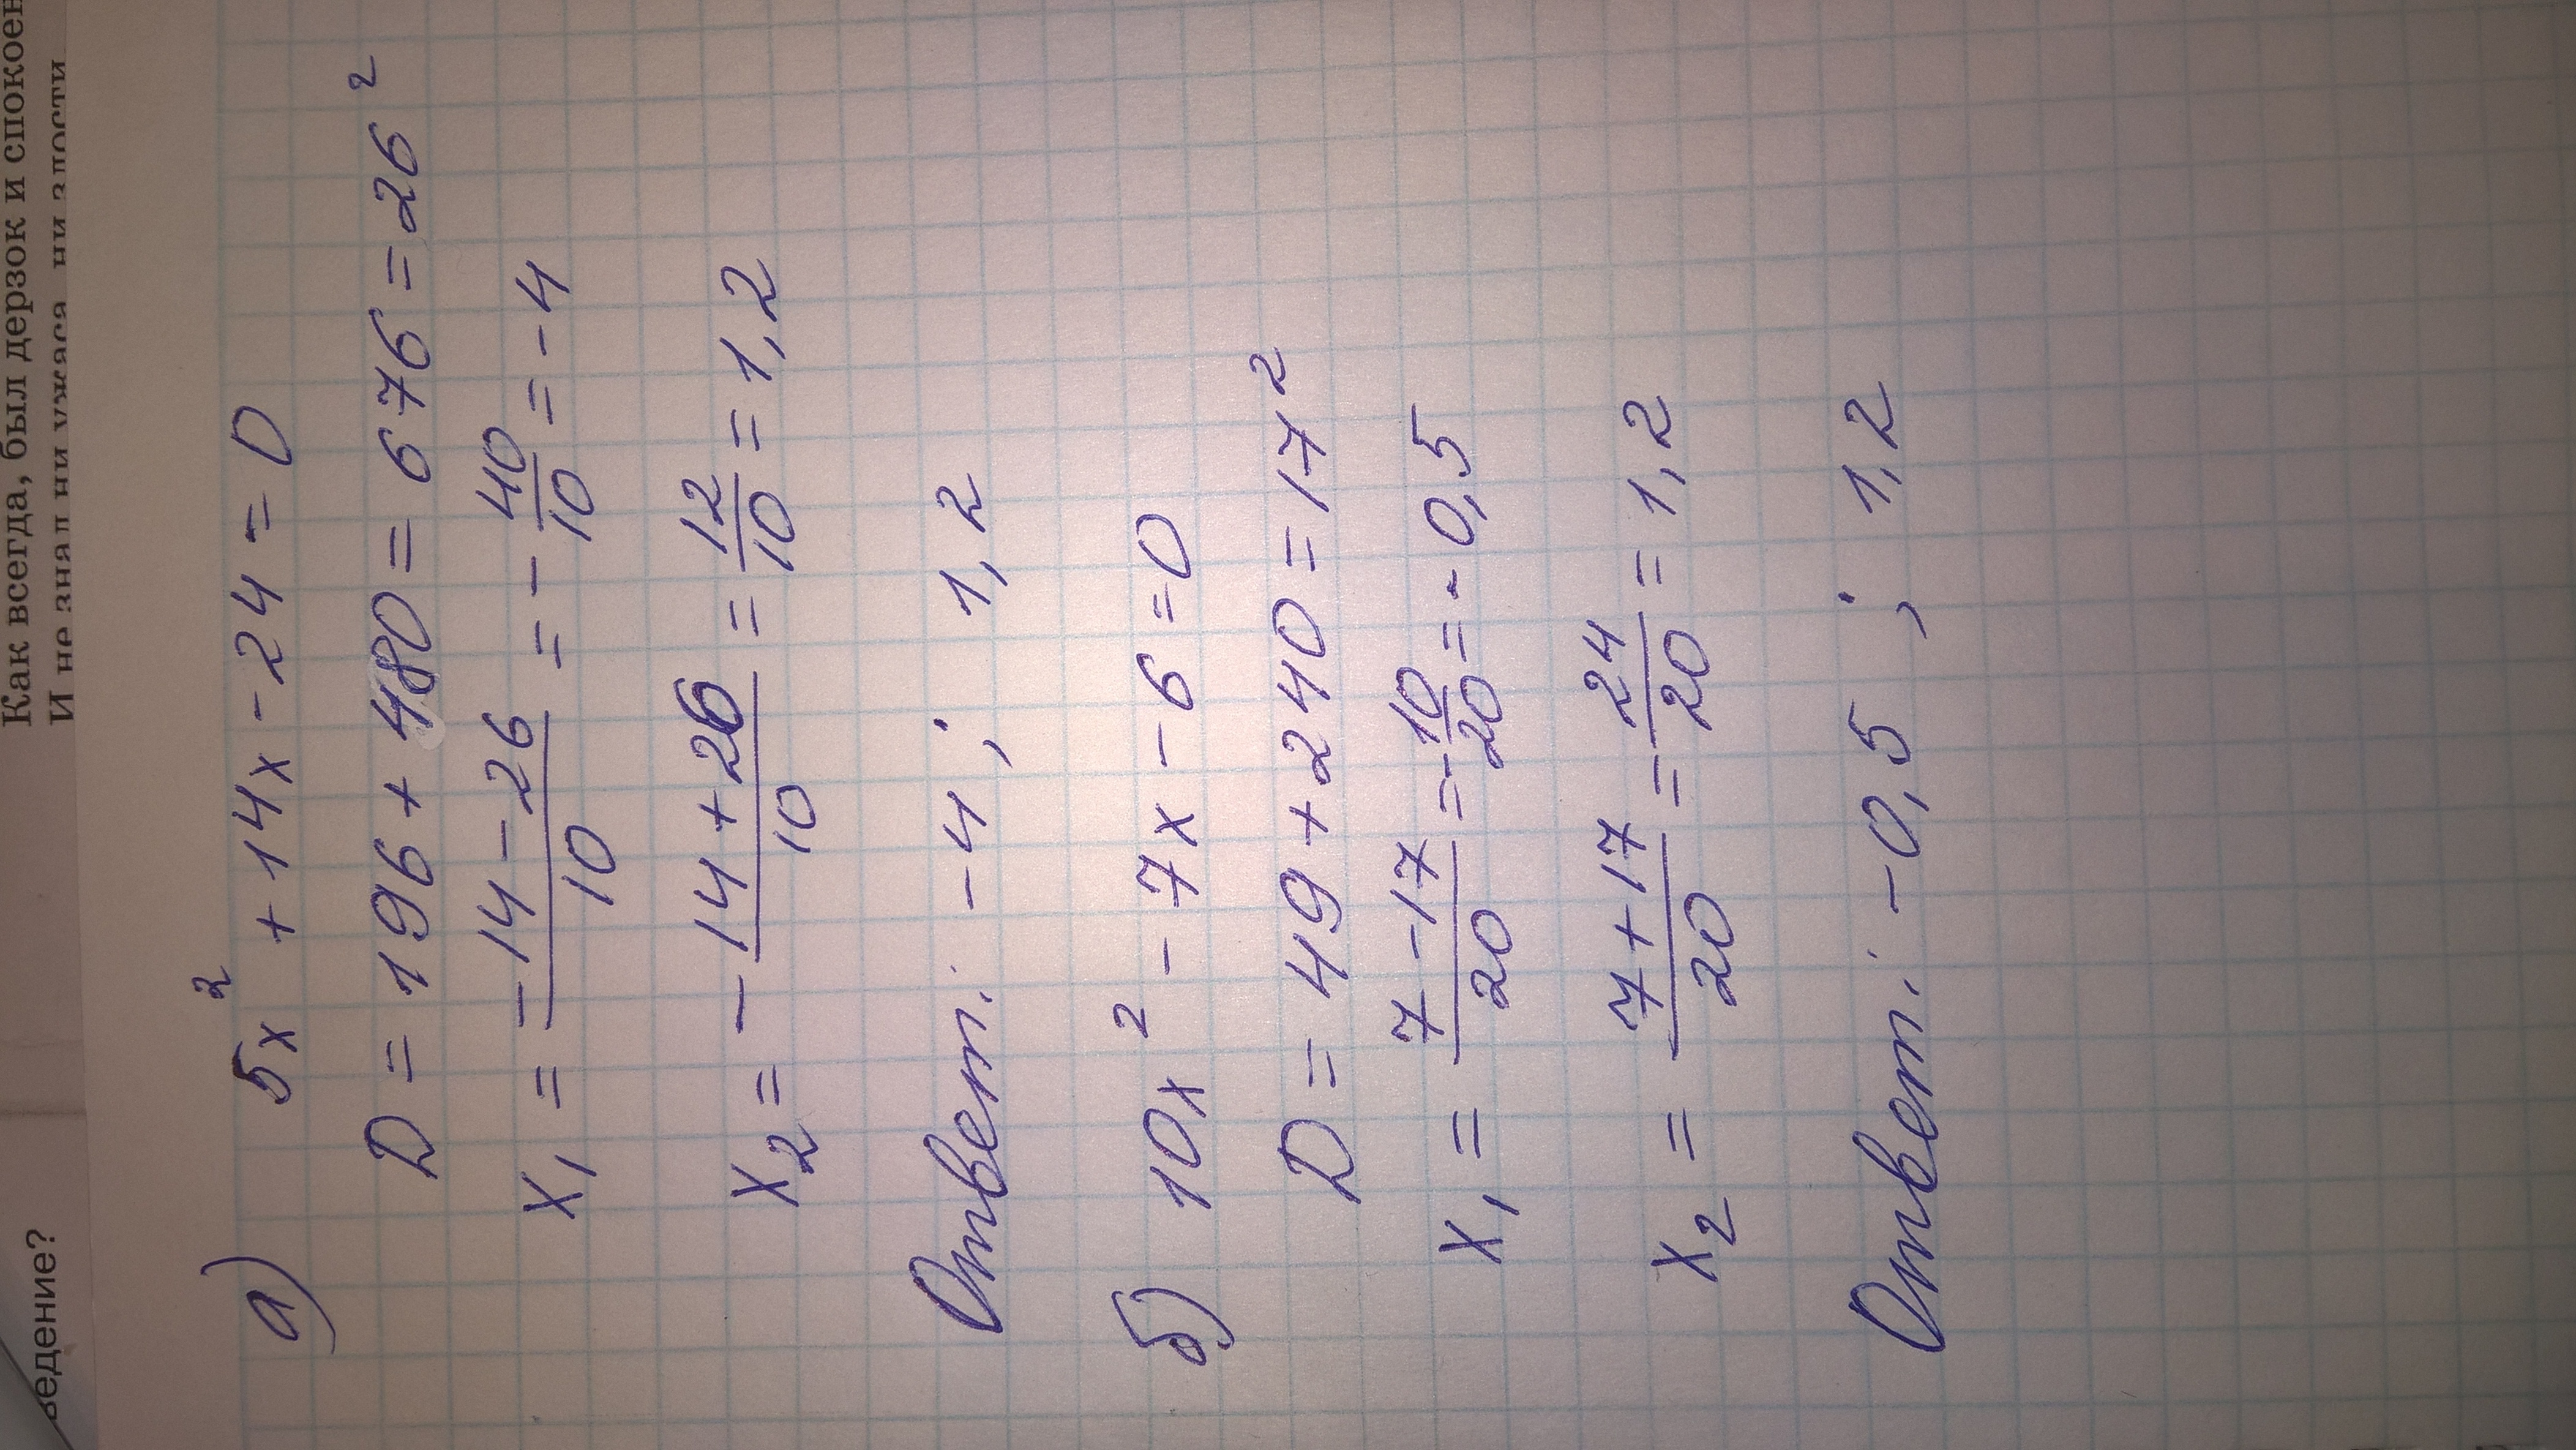 Как всегда, был дерзок и спокоен
И не знал ни ужаса, ни злости
ведение?
а) 5x² + 14x - 24 = 0
D = 196 + 480 = 676 = 26²
x₁ = (-14 - 26)/10 = - 40/10 = -4
x₂ = - (14 + 26)/10 = 12/10 = 1,2
Ответ: -4 ; 1,2
б) 10x² - 7x - 6 = 0
D = 49 + 240 = 17²
x₁ = (7 - 17)/20 = - 10/20 = - 0,5
x₂ = (7 + 17)/20 = 24/20 = 1,2
Ответ: -0,5 ; 1,2